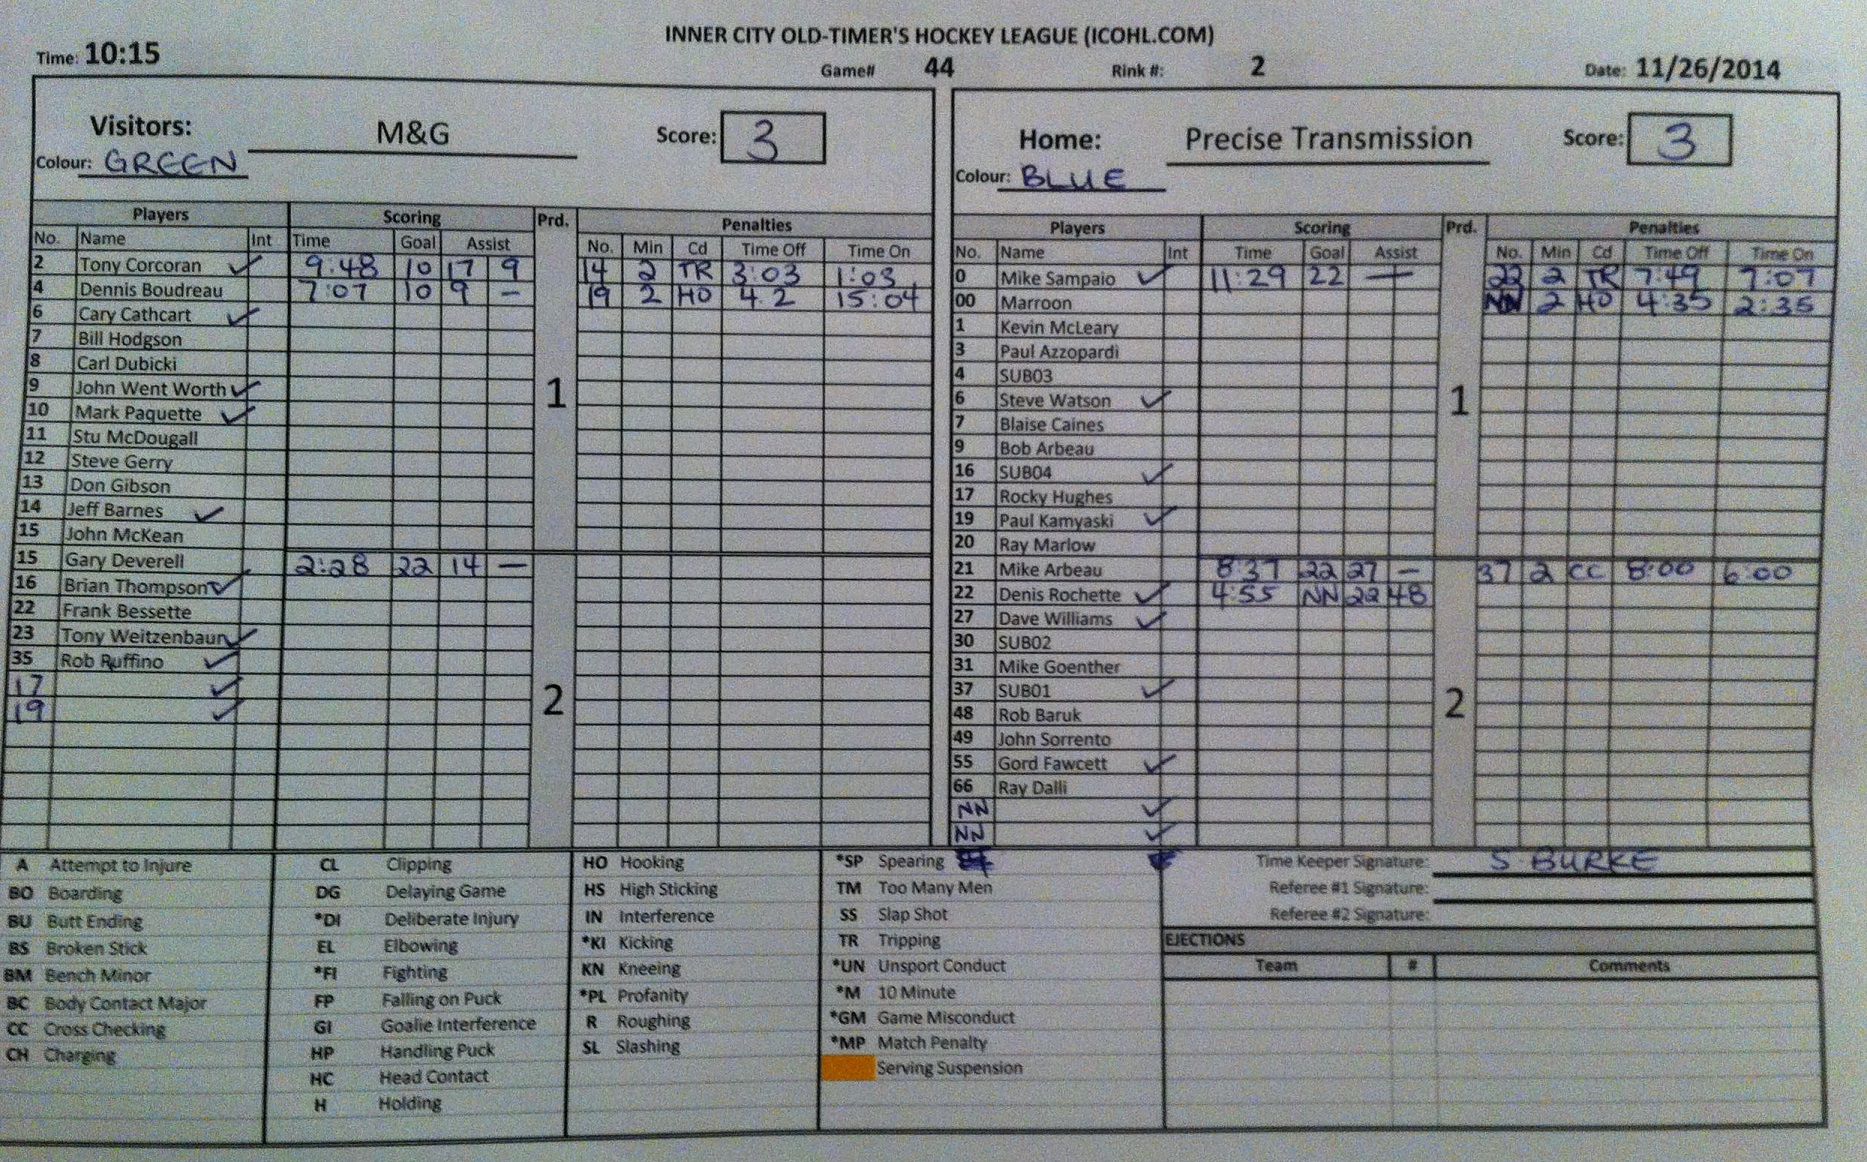 INNER CITY OLD-TIMER'S HOCKEY LEAGUE (ICOHL.COM)
Time: 10:15 Game# 44 Rink #: 2 Date: 11/26/2014
Visitors: M&G Score: 3
Colour: GREEN
Players Scoring Prd. Penalties
No. Name Int Time Goal Assist No. Min Cd Time Off Time On
2 Tony Corcoran ✓ 9:48 10 17 9 14 2 TR 3:03 1:03
4 Dennis Boudreau 7:07 10 9 – 19 2 HO 4.2 15:04
6 Cary Cathcart ✓
7 Bill Hodgson
8 Carl Dubicki
9 John Went Worth ✓
1
10 Mark Paquette ✓
11 Stu McDougall
12 Steve Gerry
13 Don Gibson
14 Jeff Barnes ✓
15 John McKean
15 Gary Deverell 2:28 22 14 –
16 Brian Thompson ✓
22 Frank Bessette
23 Tony Weitzenbaun ✓
35 Rob Ruffino ✓
17 ✓
2
19 ✓
Home: Precise Transmission Score: 3
Colour: BLUE
Players Scoring Prd. Penalties
No. Name Int Time Goal Assist No. Min Cd Time Off Time On
0 Mike Sampaio ✓ 11:29 22 – 22 2 TR 7:49 7:07
00 Marroon NN 2 HO 4:35 2:35
1 Kevin McLeary
3 Paul Azzopardi
4 SUB03
6 Steve Watson ✓
1
7 Blaise Caines
9 Bob Arbeau
16 SUB04 ✓
17 Rocky Hughes
19 Paul Kamyaski ✓
20 Ray Marlow
21 Mike Arbeau 8:37 22 27 – 37 2 CC 8:00 6:00
22 Denis Rochette ✓ 4:55 NN 22 48
27 Dave Williams ✓
30 SUB02
31 Mike Goenther
37 SUB01 ✓
2
48 Rob Baruk
49 John Sorrento
55 Gord Fawcett ✓
66 Ray Dalli
NN ✓
NN ✓
A Attempt to Injure
BO Boarding
BU Butt Ending
BS Broken Stick
BM Bench Minor
BC Body Contact Major
CC Cross Checking
CH Charging
CL Clipping
DG Delaying Game
*DI Deliberate Injury
EL Elbowing
*FI Fighting
FP Falling on Puck
GI Goalie Interference
HP Handling Puck
HC Head Contact
H Holding
HO Hooking
HS High Sticking
IN Interference
*KI Kicking
KN Kneeing
*PL Profanity
R Roughing
SL Slashing
*SP Spearing
TM Too Many Men
SS Slap Shot
TR Tripping
*UN Unsport Conduct
*M 10 Minute
*GM Game Misconduct
*MP Match Penalty
Serving Suspension
Time Keeper Signature: S. BURKE
Referee #1 Signature:
Referee #2 Signature:
EJECTIONS
Team # Comments